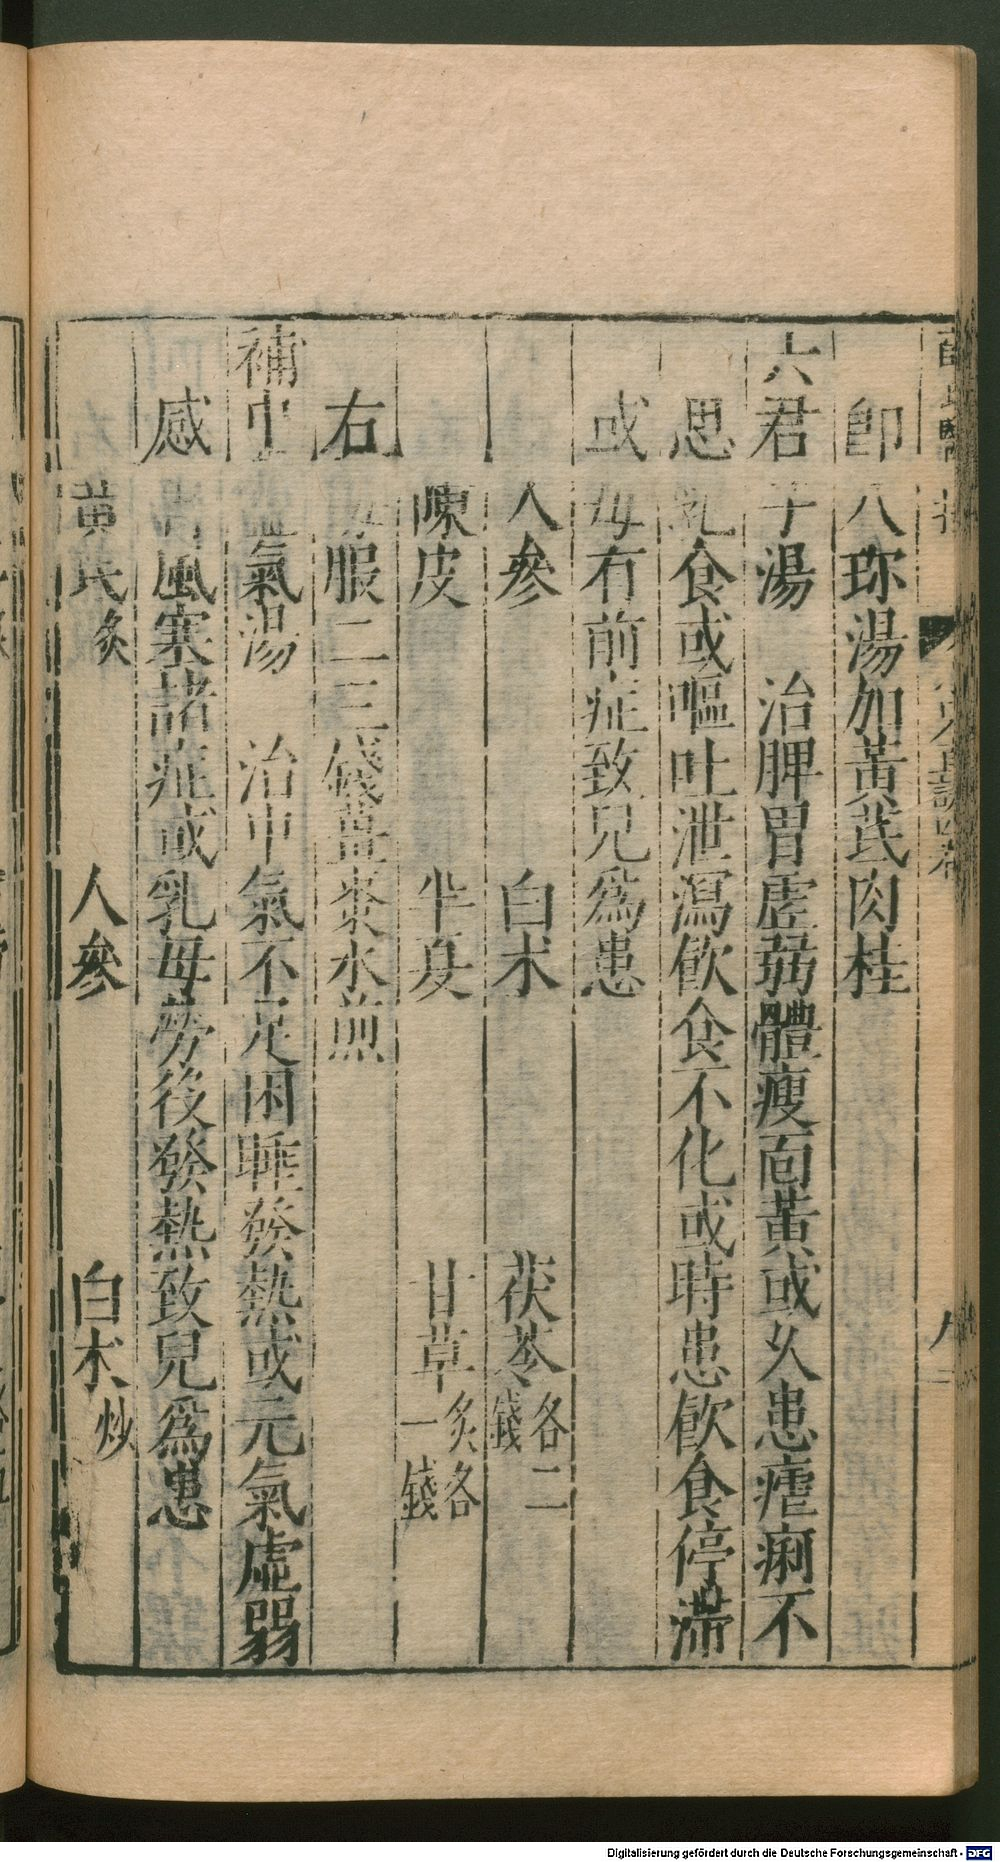 即八珎湯加黃茋肉桂
六君子湯　治脾胃虛弱體瘦面黃或久患瘧痢不
思乳食或嘔吐泄瀉飮食不化或時患飮食停滯
或母有前症致兒爲患
人參　白朮　茯苓各二錢
陳皮　半夏　甘草炙各一錢
右每服二三錢薑棗水煎
補中益氣湯　治中氣不足困睡發熱或元氣虛弱
感冒風寒諸症或乳母勞後發熱致兒爲患
黃茋炙　人參　白朮炒
Digitalisierung gefördert durch die Deutsche Forschungsgemeinschaft - DFG